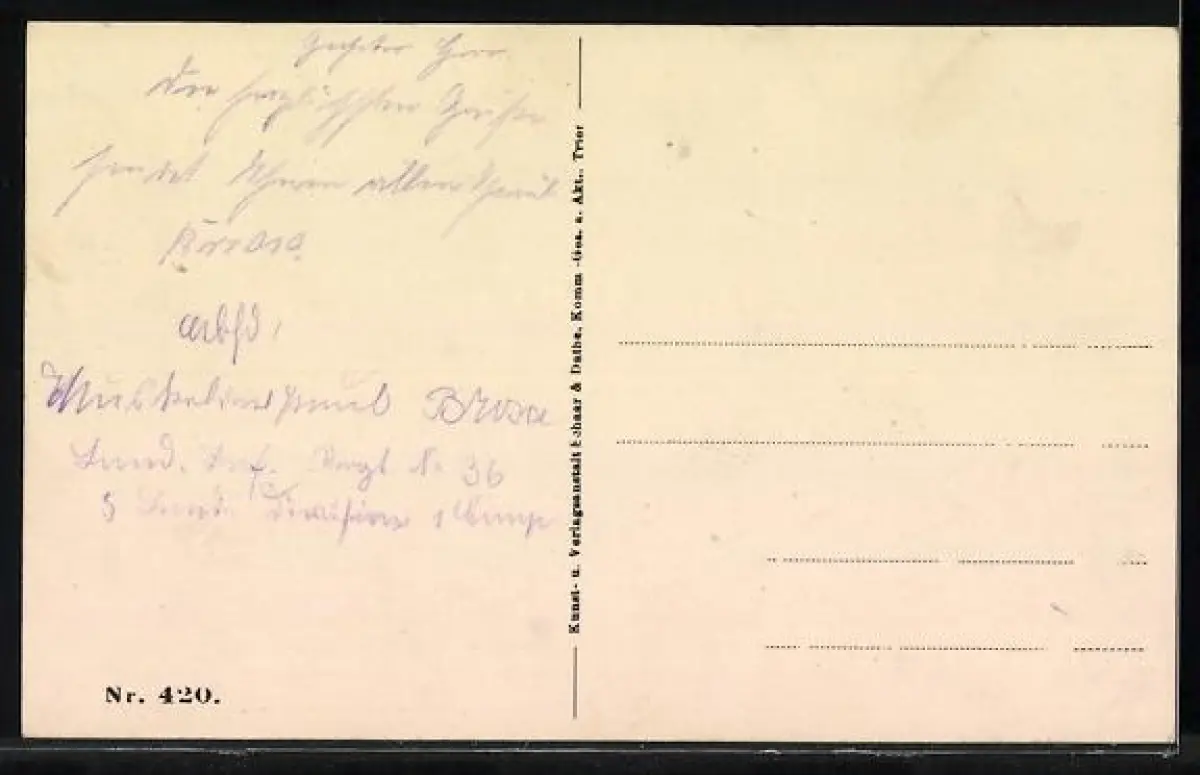 Geehrter Herr
Die herzlichsten Grüße
sendet Ihnen allen Paul
Brose
Absd.
Musketier Paul Brose
Land. Inf. Regt No 36
5 Landw. Division 1 Comp
Kunst- u. Verlagsanstalt Schaar & Dathe, Komm.-Ges. a. Akt., Trier
Nr. 420.